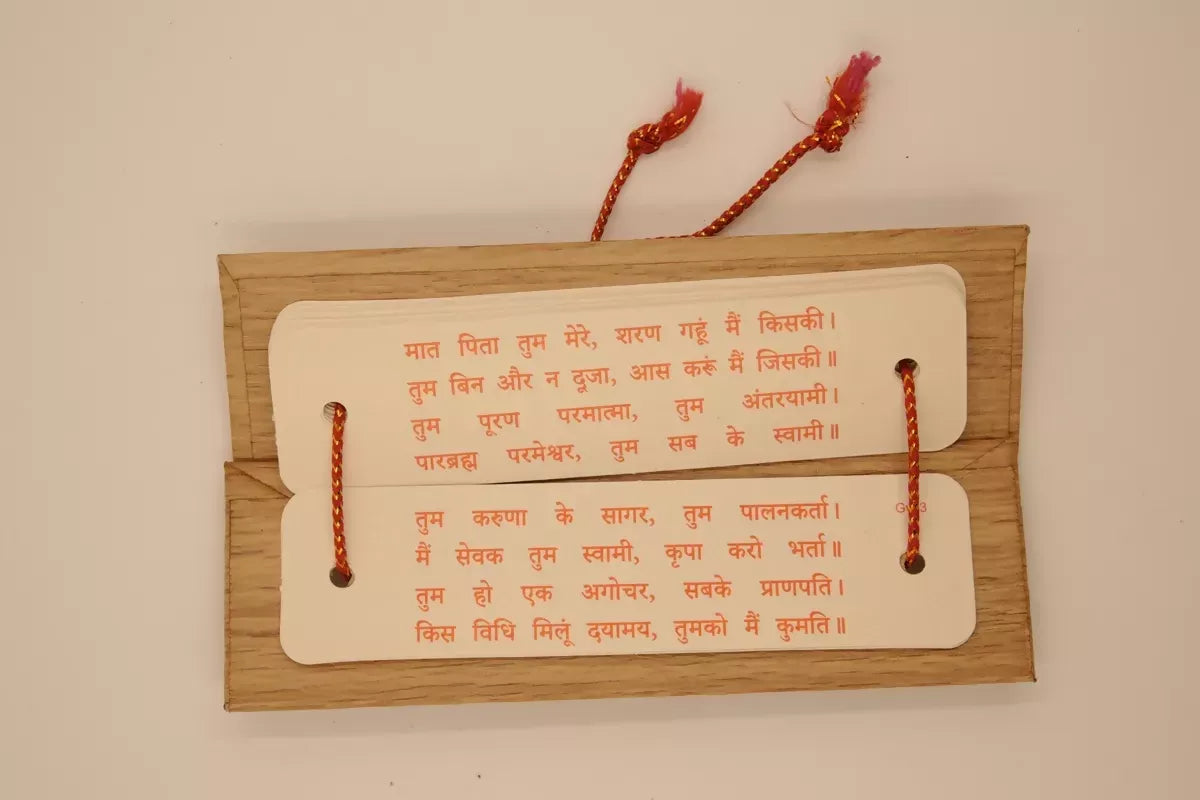 मात पिता तुम मेरे, शरण गहूं मैं किसकी।
तुम बिन और न दूजा, आस करूं मैं जिसकी॥
तुम पूरण परमात्मा, तुम अंतरयामी।
पारब्रह्म परमेश्वर, तुम सब के स्वामी॥
तुम करुणा के सागर, तुम पालनकर्ता।
मैं सेवक तुम स्वामी, कृपा करो भर्ता॥
तुम हो एक अगोचर, सबके प्राणपति।
किस विधि मिलूं दयामय, तुमको मैं कुमति॥